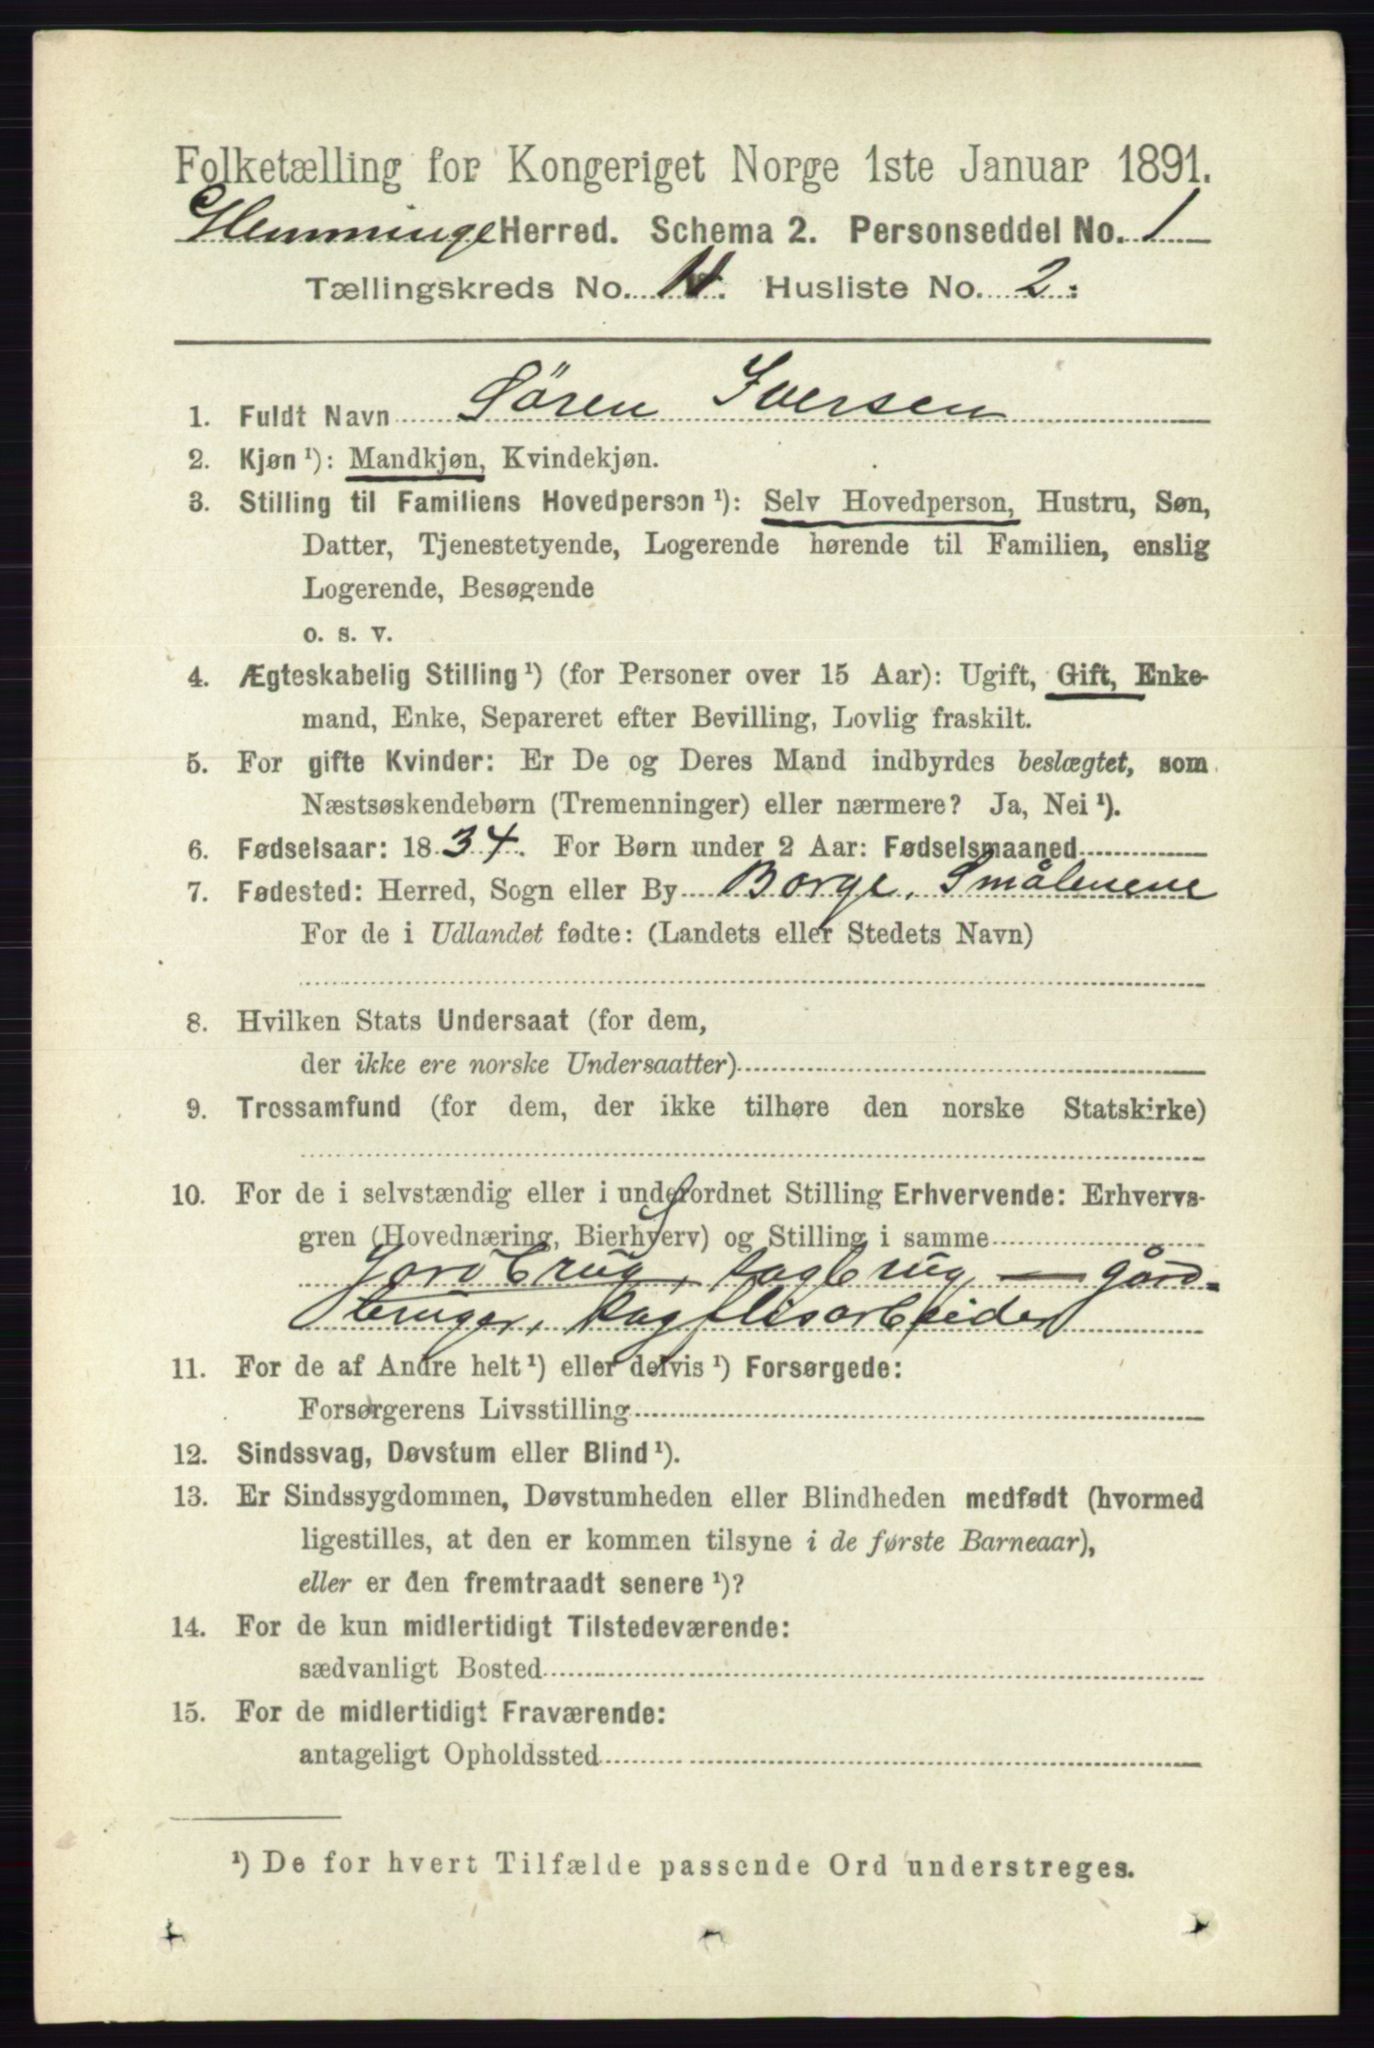 Folketælling for Kongeriget Norge 1ste Januar 1891.
Glemminge Herred. Schema 2. Personseddel No. 1
Tællingskreds No. 11. Husliste No. 2:
1. Fuldt Navn Sören Iversen
2. Kjøn ¹): Mandkjøn, Kvindekjøn.
3. Stilling til Familiens Hovedperson ¹): Selv Hovedperson, Hustru, Søn,
Datter, Tjenestetyende, Logerende hørende til Familien, enslig
Logerende, Besøgende
o. s. v.
4. Ægteskabelig Stilling ¹) (for Personer over 15 Aar): Ugift, Gift, Enke-
mand, Enke, Separeret efter Bevilling, Lovlig fraskilt.
5. For gifte Kvinder: Er De og Deres Mand indbyrdes beslægtet, som
Næstsøskendebørn (Tremenninger) eller nærmere? Ja, Nei ¹).
6. Fødselsaar: 1834. For Børn under 2 Aar: Fødselsmaaned
7. Fødested: Herred, Sogn eller By Borge, Smålenene
For de i Udlandet fødte: (Landets eller Stedets Navn)
8. Hvilken Stats Undersaat (for dem,
der ikke ere norske Undersaatter)
9. Trossamfund (for dem, der ikke tilhøre den norske Statskirke)
10. For de i selvstændig eller i underordnet Stilling Erhvervende: Erhvervs-
gren (Hovednæring, Bierhverv) og Stilling i samme
Jordbrug, sagbrug — gård-
bruger, sagflisarbeider
11. For de af Andre helt ¹) eller delvis ¹) Forsørgede:
Forsørgerens Livsstilling
12. Sindssvag, Døvstum eller Blind ¹).
13. Er Sindssygdommen, Døvstumheden eller Blindheden medfødt (hvormed
ligestilles, at den er kommen tilsyne i de første Barneaar),
eller er den fremtraadt senere ¹)?
14. For de kun midlertidigt Tilstedeværende:
sædvanligt Bosted
15. For de midlertidigt Fraværende:
antageligt Opholdssted
¹) De for hvert Tilfælde passende Ord understreges.